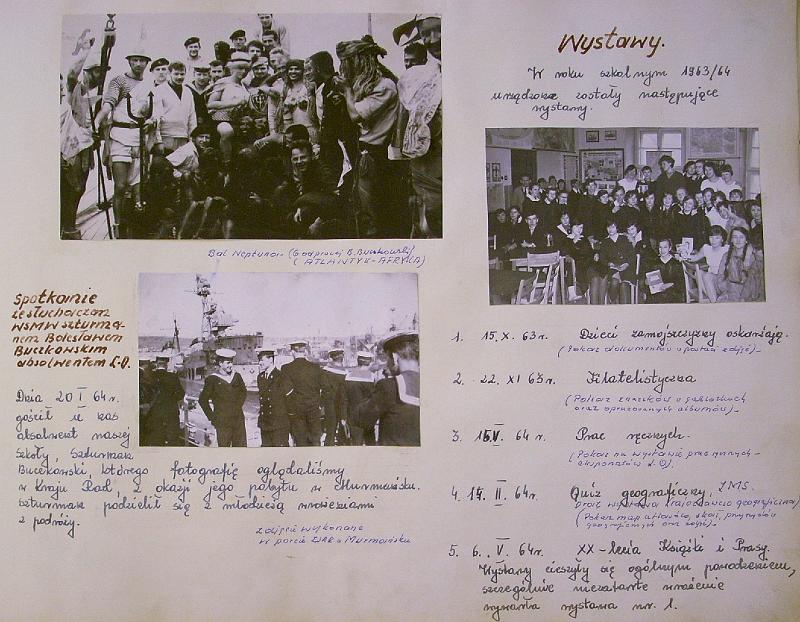 Bal Neptuna - (6 od prawej B. Buczkowski)
(ATLANTYK-AFRYKA)
Spotkanie
ze słuchaczem
WSMW szturma-
nem Bolesławem
Buczkowskim
absolwentem L.O.
Dnia 20 I 64r.
gościł u nas
absolwent naszej
szkoły, szturman
Buczkowski, którego fotografię oglądaliśmy
w Kraju Rad, z okazji jego pobytu w Murmańsku.
Szturman podzielił się z młodzieżą wrażeniami
z podróży.
Zdjęcie wykonane
w porcie ZSRR - Murmańsku
Wystawy.
W roku szkolnym 1963/64
urządzone zostały następujące
wystawy.
1. 15. X. 63r. Dzieci zamojszczyzny oskarżają.
(Pokaz dokumentów w postaci zdjęć)-
2. 22. XI 63r. Filatelistyczna
(Pokaz znaczków w gablotkach
oraz opracowanych albumów)-
3. 15.V. 64r. Prac ręcznych.
(Pokaz na wystawie prac ręcznych-
eksponatów L.O).
4. 14. II. 64r. Quiz geograficzny, ZMS.
oraz wystawa krajoznawczo geograficzna)
(Pokaz map atlasów, skał, przyrządów
geograficznych oraz zdjęć)-
5. 6. V. 64r. XX-lecia Książki i Prasy.
Wystawy cieszyły się ogólnym powodzeniem,
szczególnie niezatarte wrażenie
wywarła wystawa nr. 1.